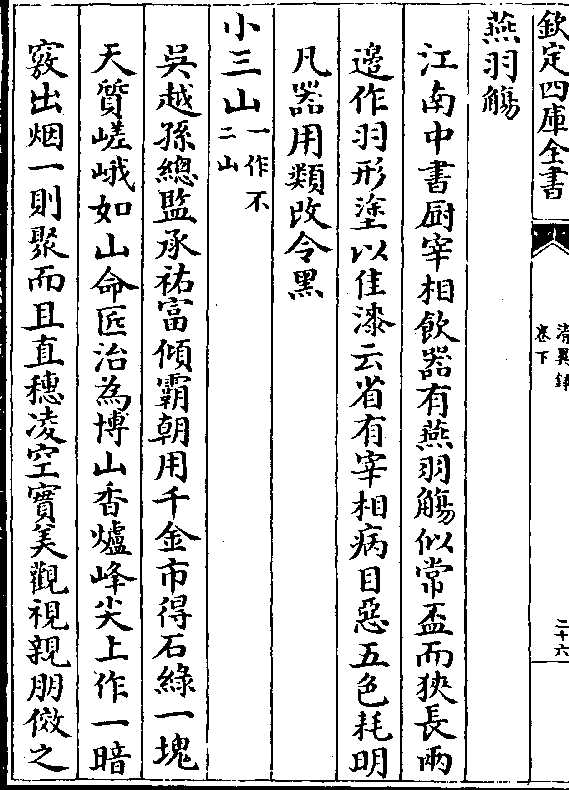 欽定四庫全書
清異録
卷下
二十六
燕羽觴
江南中書厨宰相飲器有燕羽觴似常盃而狹長兩
邉作羽形塗以佳漆云省有宰相病目惡五色耗明
凡器用類改令黑
小三山一作不二山
吳越孫總監承祐富傾霸朝用千金市得石綠一塊
天質嵯峨如山命匠治為博山香爐峰尖上作一暗
竅出烟一則聚而且直穗凌空實美觀視親朋傚之